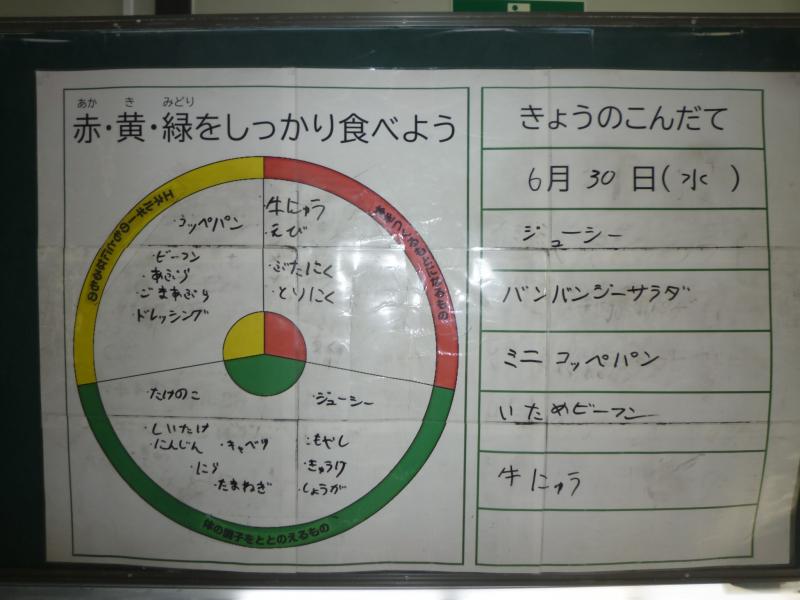 あか き みどり
赤・黄・緑をしっかり食べよう
エネルギーのもとになるもの
・コッペパン
・ビーフン
・あぶら
・ごまあぶら
・ドレッシング
・牛にゅう
・えび
・ぶたにく
・とりにく
・たけのこ
・しいたけ
・にんじん ・キャベツ
・にら
・たまねぎ
・ジューシー
・もやし
・きゅうり
・しょうが
体の調子をととのえるもの
きょうのこんだて
6月 30 日(水)
ジューシー
バンバンジーサラダ
ミニコッペパン
いためビーフン
牛にゅう